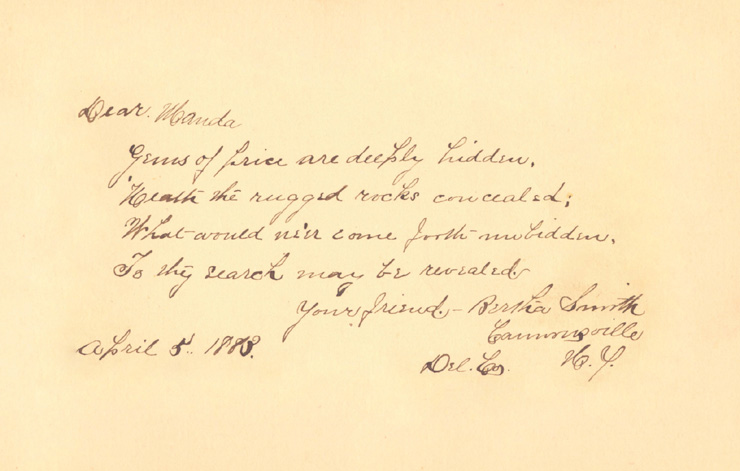 Dear. Manda
Gems of price are deeply hidden,
'Neath the rugged rocks concealed;
What would ne'er come forth unbidden,
To thy search may be revealed
Your friend. - Bertha Smith
Cannonsville
April 5". 1883.
Del. Co. N. Y.